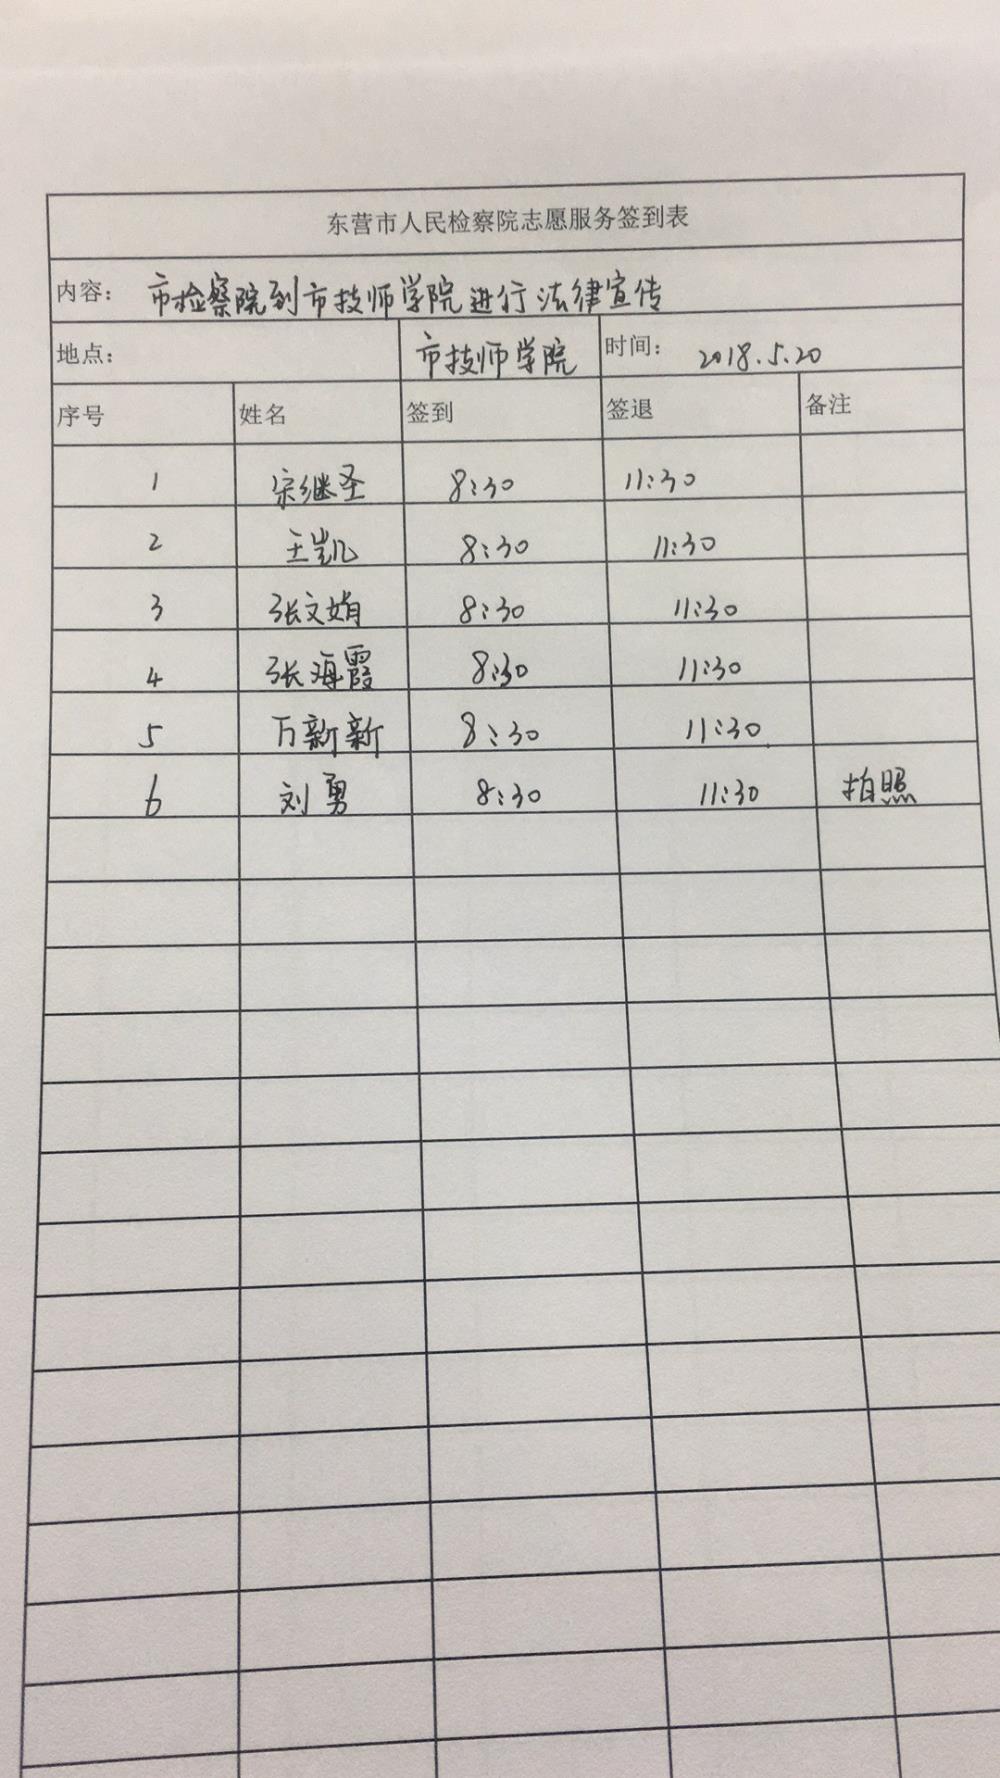 东营市人民检察院志愿服务签到表
内容： 市检察院到市技师学院进行法律宣传
地点： 市技师学院 时间： 2018.5.20
序号 姓名 签到 签退 备注
1 宗继圣 8:30 11:30
2 王凯 8:30 11:30
3 张文娟 8:30 11:30
4 张海霞 8:30 11:30
5 万新新 8:30 11:30
6 刘勇 8:30 11:30 拍照